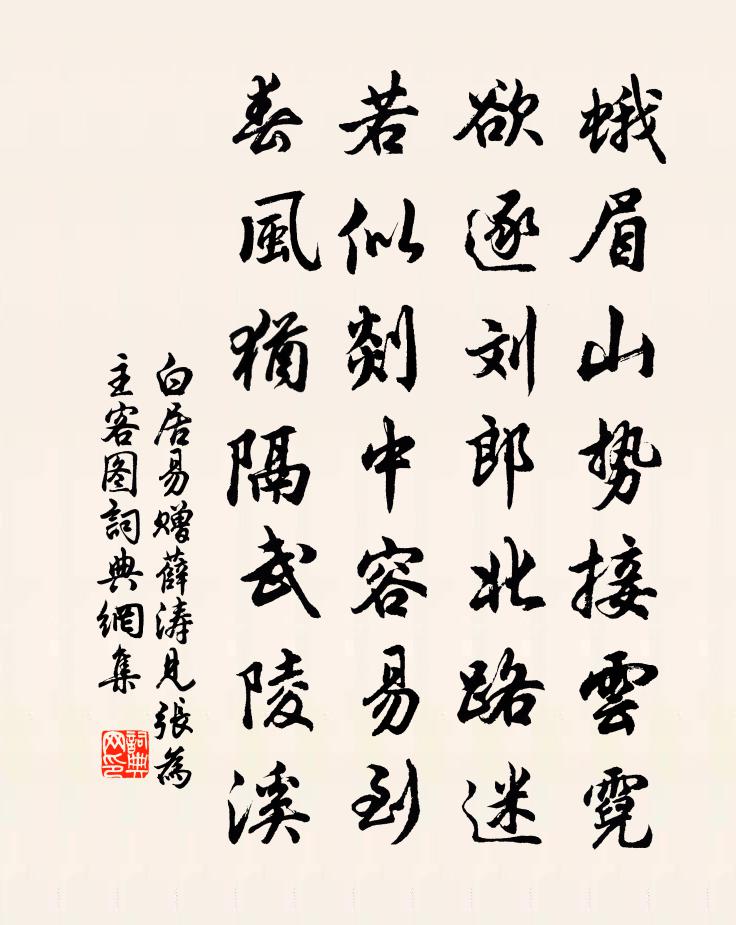 蛾眉山势接雲霓
欲逐刘郎北路迷
若似剡中容易到
春風猶隔武陵溪
白居易赠薛涛見張為
主客图詞典網集
詞典网印